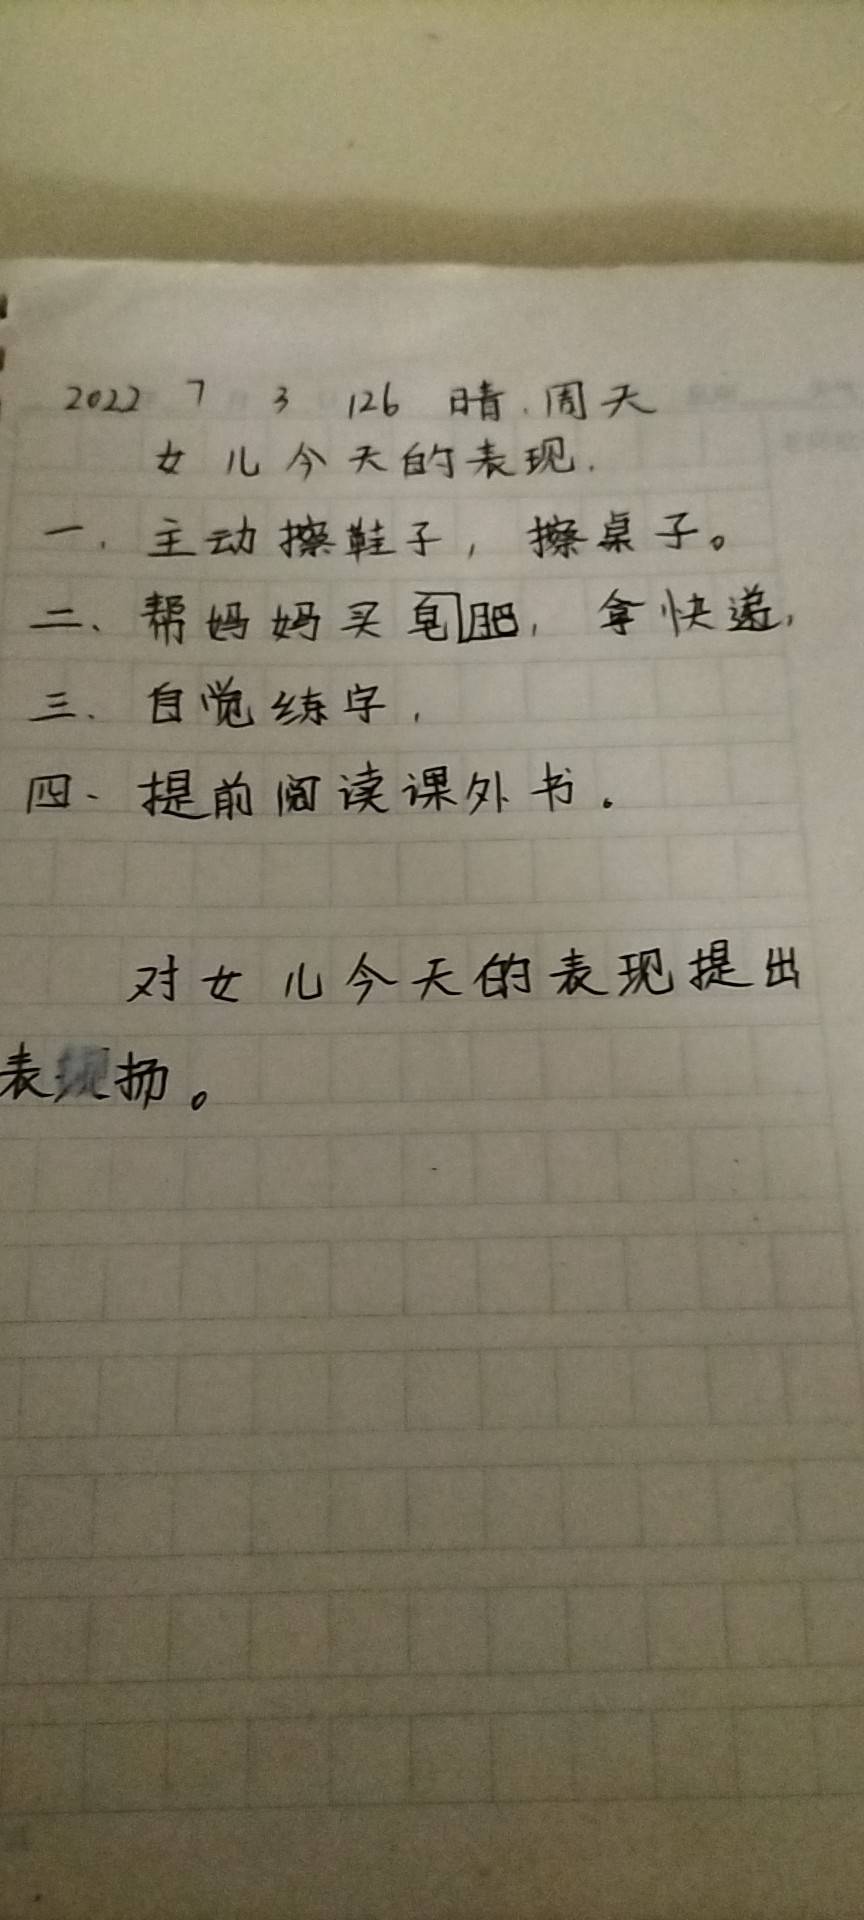 2022 7 3 126 晴.周天
女儿今天的表现.
一.主动擦鞋子,擦桌子。
二、帮妈妈买皂肥,拿快递,
三.自觉练字,
四、提前阅读课外书.
对女儿今天的表现提出
表扬。